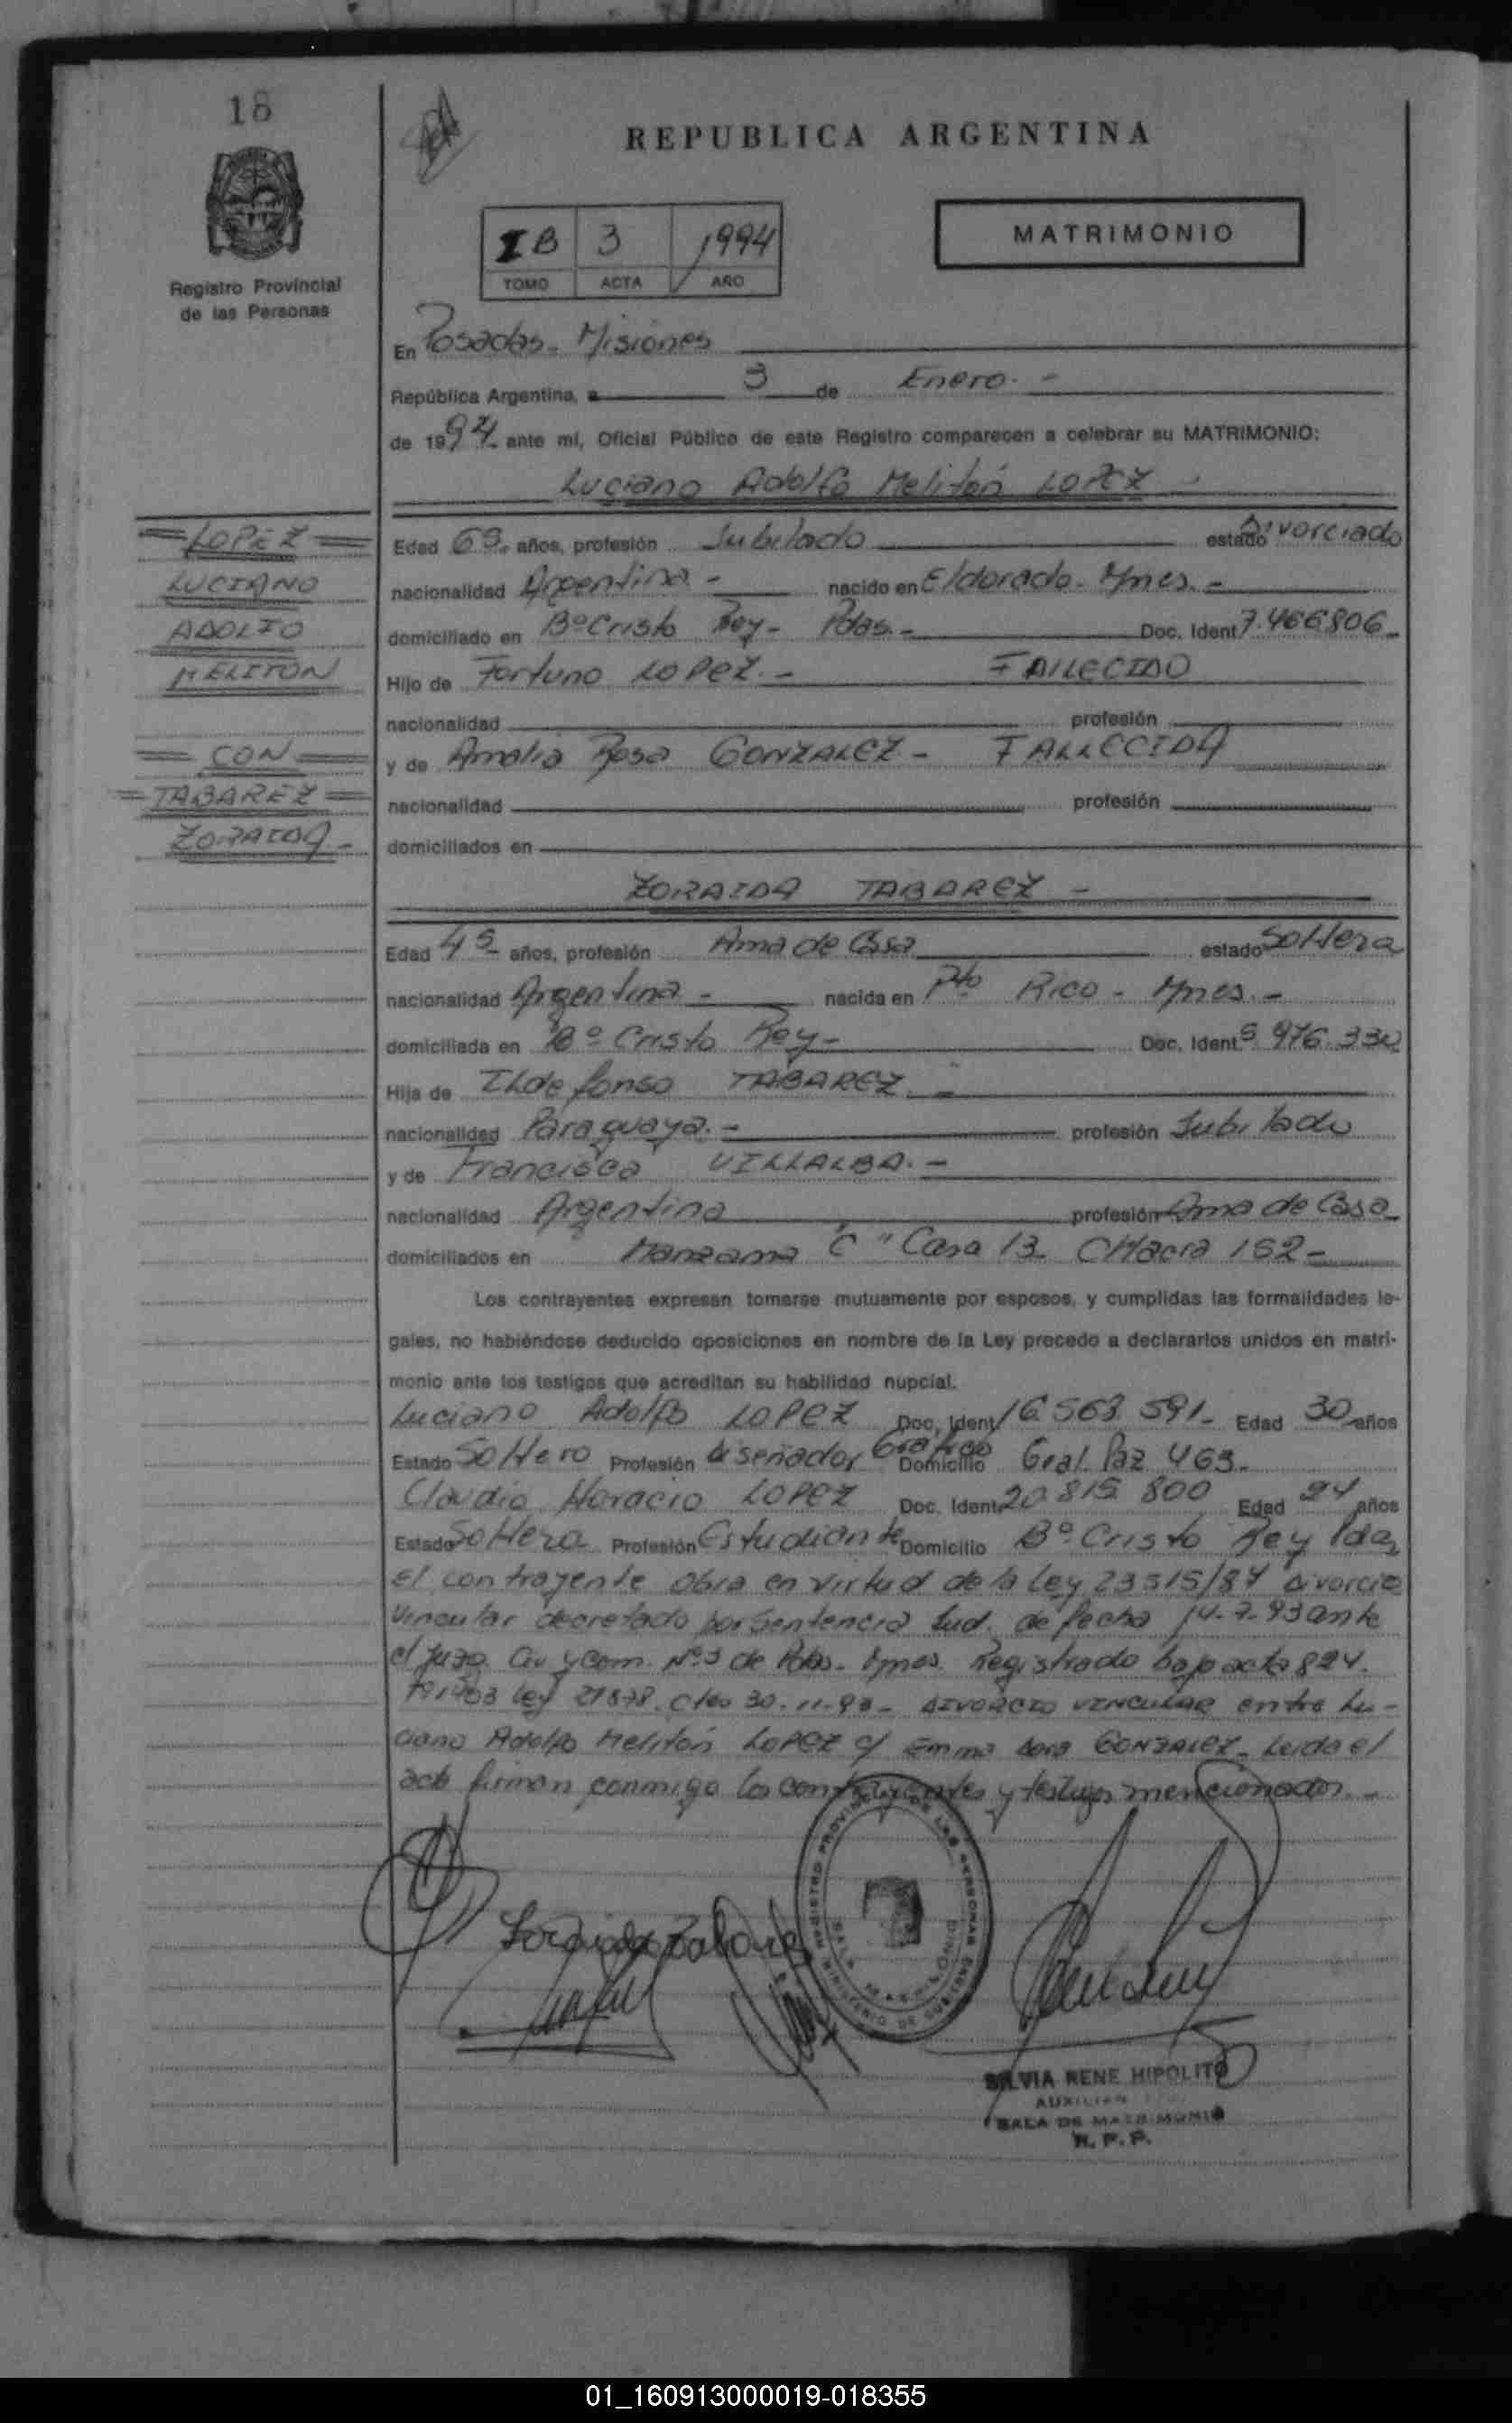 18
REPUBLICA ARGENTINA
Registro Provincial
de las Personas
I B 3 1994
TOMO ACTA AÑO
MATRIMONIO
En Posadas - Misiones
República Argentina, a 3 de Enero. -
de 1994 ante mí, Oficial Público de este Registro comparecen a celebrar su MATRIMONIO:
Luciano Adolfo Melitón LOPEZ -
= LOPEZ =
LUCIANO
ADOLFO
MELITON
= CON =
= TABAREZ =
ZORAIDA -
Edad 69 años, profesión Jubilado estado Divorciado
nacionalidad Argentina - nacido en Eldorado - Mnes. -
domiciliado en Bº Cristo Rey - Pdas. - Doc. Ident 7.466.806 -
Hijo de Fortuno LOPEZ. - FALLECIDO
nacionalidad profesión
y de Amalia Rosa GONZALEZ - FALLECIDA
nacionalidad profesión
domiciliados en
ZORAIDA TABAREZ -
Edad 45 años, profesión Ama de Casa estado Soltera
nacionalidad Argentina - nacida en Pto Rico - Mnes. -
domiciliada en Bº Cristo Rey - Doc. Ident. 976.330
Hija de Ildefonso TABAREZ -
nacionalidad Paraguaya. - profesión Jubilado
y de Francisca VILLALBA. -
nacionalidad Argentina profesión Ama de Casa
domiciliados en Manzana "C" Casa 13 CHacra 152 -
Los contrayentes expresan tomarse mutuamente por esposos, y cumplidas las formalidades le-
gales, no habiéndose deducido oposiciones en nombre de la Ley procedo a declararlos unidos en matri-
monio ante los testigos que acreditan su habilidad nupcial.
Luciano Adolfo LOPEZ Doc. Ident 16.563.591 - Edad 30 años
Estado Soltero Profesión diseñador Gráfico Domicilio Gral. Paz 463 -
Claudia Horacio LOPEZ Doc. Ident. 20.815.800 Edad 24 años
Estado Soltera Profesión Estudiante Domicilio Bº Cristo Rey Pdas
El contrayente obra en virtud de la Ley 23515/87 divorcio
vincular decretado por Sentencia Jud. de fecha 14-7-93 ante
el Juzg. Civ y Com. Nº 3 de Pdas - Mnes. Registrado bajo acta 824.
Ley DIVORCIO VINCULAR entre Lu-
ciano Adolfo Melitón LOPEZ c/ Emma GONZALEZ - Leída el
acta firman conmigo los contrayentes y testigos mencionados. -
Zoraida Tabarez
REGISTRO PROVINCIAL DE LAS PERSONAS
SALA MATRIMONIO
MINISTERIO DE GOBIERNO
SILVIA RENE HIPOLITO
AUXILIAR
SALA DE MATRIMONIO
R. P. P.
01_160913000019-018355